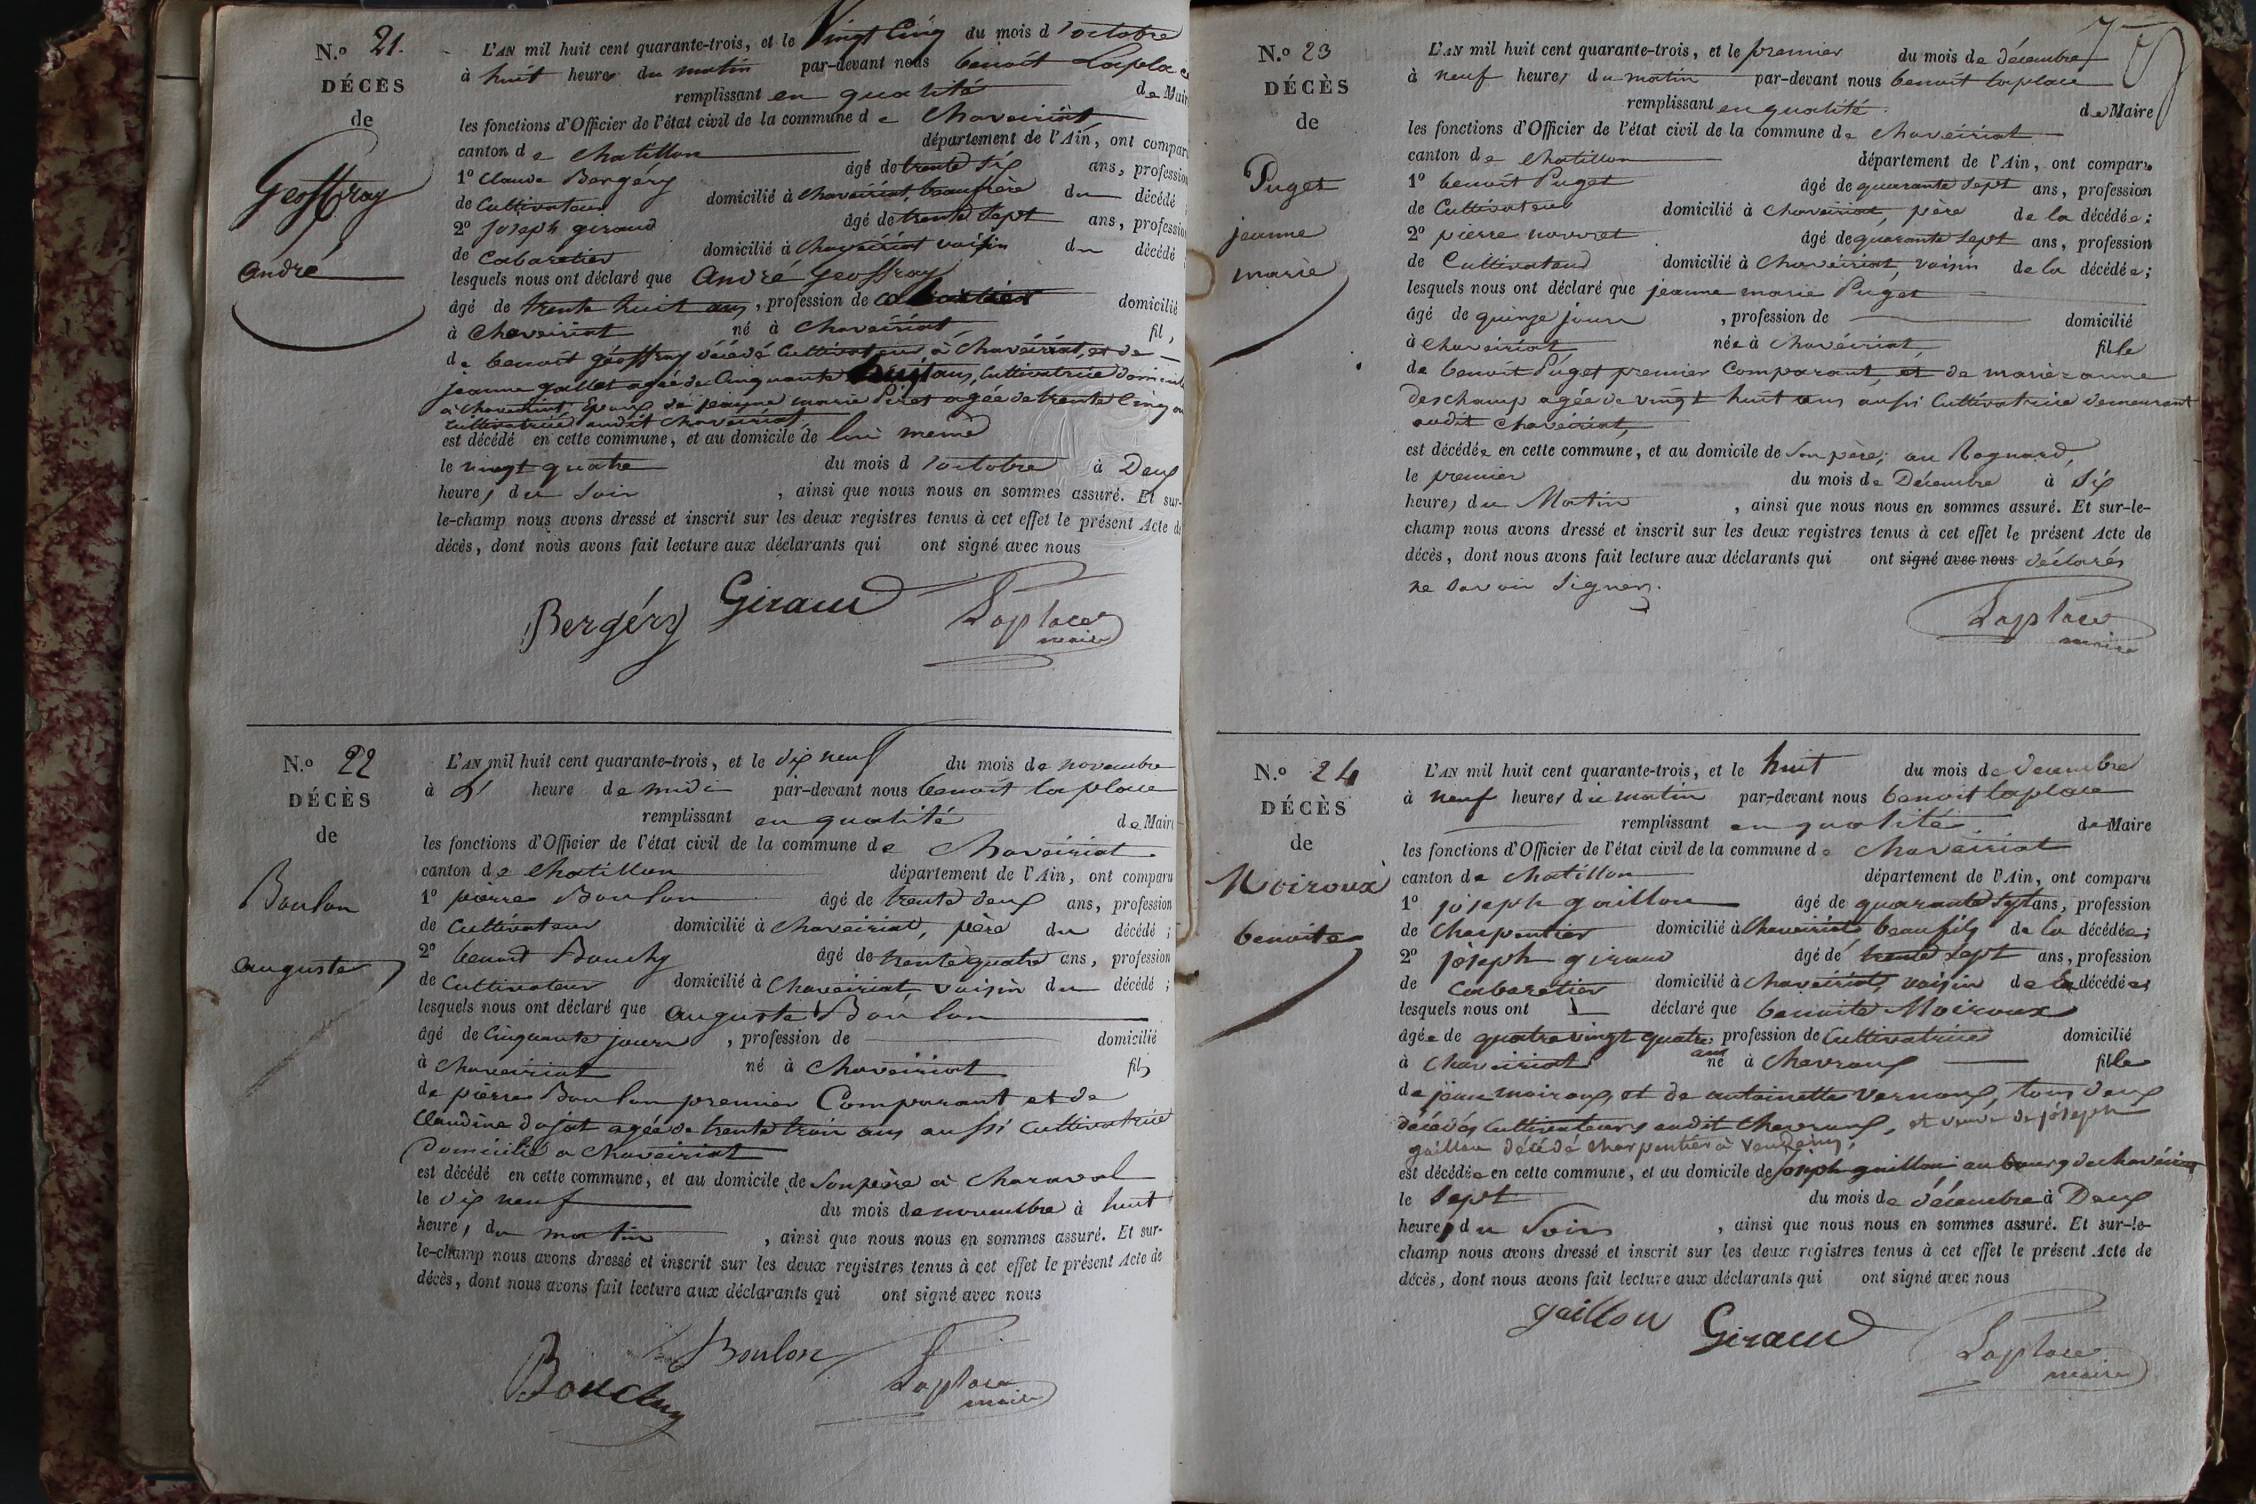 N.º 21.
DÉCÈS
de
Geoffray
andré
L'AN mil huit cent quarante-trois, et le Vingt Cinq du mois d'octobre
à huit heures du matin par-devant nous benoit Laplace
remplissant en qualité de Maire
les fonctions d'Officier de l'état civil de la commune de Chaveiriat
canton de Chatillon département de l'Ain, ont comparu
1º Claude Bergéry âgé de trente six ans, profession
de Cultivateur domicilié à Chaveiriat, beaufrère du décédé
2º joseph giraud âgé de trente sept ans, profession
de Cabaretier domicilié à Chaveiriat voisin du décédé
lesquels nous ont déclaré que André Geoffray
âgé de trente huit ans, profession de domicilié
à Chaveiriat né à Chaveiriat, fils
de benoit géoffray décédé Cultivateur à Chaveiriat, et de
jeanne gallet agée de Cinquante huit ans, Cultivatrice domicilié
à Chaveiriat Epoux de jeanne marie Piret agée de trente Cinq ans
Cultivatrice audit Chaveiriat,
est décédé en cette commune, et au domicile de lui meme
le vingt quatre du mois d'octobre à Deux
heures du Soir, ainsi que nous nous en sommes assuré. Et sur-
le-champ nous avons dressé et inscrit sur les deux registres tenus à cet effet le présent Acte de
décès, dont nous avons fait lecture aux déclarants qui ont signé avec nous
Bergéry Giraud Laplace
maire
N.º 22
DÉCÈS
de
Boulon
auguste
L'AN mil huit cent quarante-trois, et le dix neuf du mois de novembre
à heure de midi par-devant nous benoit laplace
remplissant en qualité de Maire
les fonctions d'Officier de l'état civil de la commune de Chaveiriat
canton de Chatillon département de l'Ain, ont comparu
1º pierre Boulon âgé de trente deux ans, profession
de Cultivateur domicilié à Chaveiriat, père du décédé;
2º benoit Bouchy âgé de trente quatre ans, profession
de Cultivateur domicilié à Chaveiriat, voisin du décédé;
lesquels nous ont déclaré que auguste Boulon
âgé de Cinquante jours, profession de domicilié
à Chaveiriat né à Chaveiriat fils
de pierre Boulon premier Comparant et de
Claudine dojat agée de trente trois ans aussi Cultivatrice
Domicilié a Chaveiriat
est décédé en cette commune, et au domicile de Son père à Charaval
le dix neuf du mois de novembre à huit
heures du matin, ainsi que nous nous en sommes assuré. Et sur-
le-champ nous avons dressé et inscrit sur les deux registres tenus à cet effet le présent Acte de
décès, dont nous avons fait lecture aux déclarants qui ont signé avec nous
Boulon Laplace
Bouchy maire
N.º 23
DÉCÈS
de
Puget
jeanne
marie
L'AN mil huit cent quarante-trois, et le premier du mois de décembre
à neuf heures du matin par-devant nous benoit laplace
remplissant en qualité de Maire
les fonctions d'Officier de l'état civil de la commune de Chaveiriat
canton de Chatillon département de l'Ain, ont comparu
1º benoit Puget âgé de quarante sept ans, profession
de Cultivateur domicilié à Chaveiriat, père de la décédée;
2º pierre âgé de quarante sept ans, profession
de Cultivateur domicilié à Chaveiriat, voisin de la décédée;
lesquels nous ont déclaré que jeanne marie Puget
âgé de quinze jours, profession de domicilié
à Chaveiriat née à Chaveiriat, fille
de benoit Puget premier Comparant, et de marie anne
deschamp agée de vingt huit ans aussi Cultivatrice demeurant
audit Chaveiriat,
est décédée en cette commune, et au domicile de Son père; au Rognard,
le premier du mois de Décembre à Six
heures du Matin, ainsi que nous nous en sommes assuré. Et sur-le-
champ nous avons dressé et inscrit sur les deux registres tenus à cet effet le présent Acte de
décès, dont nous avons fait lecture aux déclarants qui ont signé avec nous déclarés
ne Savoir Signer.
Laplace
maire
N.º 24
DÉCÈS
de
Moiroux
benoite
L'AN mil huit cent quarante-trois, et le huit du mois de decembre
à neuf heures du matin par-devant nous benoit laplace
remplissant en qualité de Maire
les fonctions d'Officier de l'état civil de la commune de Chaveiriat
canton de Chatillon département de l'Ain, ont comparu
1º joseph gaillon âgé de quarante sept ans, profession
de Charpentier domicilié à Chaveiriat beaufils de la décédée;
2º joseph giraud âgé de trente sept ans, profession
de Cabaretier domicilié à Chaveiriat, voisin de la décédée;
lesquels nous ont déclaré que benoite Moiroux
âgée de quatre vingt quatre profession de Cultivatrice domicilié
ans
à Chaveiriat né à Chevroux fille
de jean moiroux et de antoinette vernoux, tous deux
décédés Cultivateurs audit Chevroux, et veuve de joseph
gaillon décédé Charpentier à Vendeins;
est décédée en cette commune, et au domicile de joseph gaillon au bourg de Chavéiriat
le Sept du mois de décembre à Deux
heures du Soir, ainsi que nous nous en sommes assuré. Et sur-le-
champ nous avons dressé et inscrit sur les deux registres tenus à cet effet le présent Acte de
décès, dont nous avons fait lecture aux déclarants qui ont signé avec nous
gaillon Giraud Laplace
maire